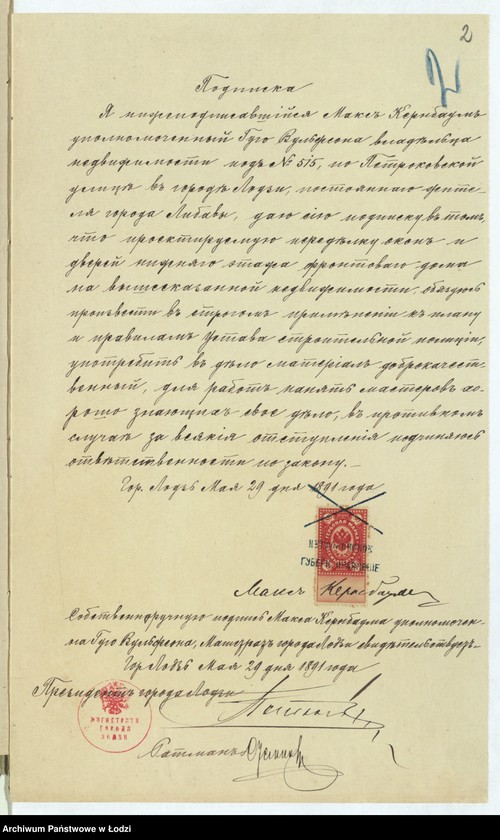 2
2
Подписка
Я нижеподписавшійся Максъ Кернбаумъ
уполномоченный Гуго Вульфсона владѣльца
недвижимости подъ № 515, по Петроковской
улицѣ въ городѣ Лодзи, постояннаго жите-
ля города Либавы, даю сію подписку въ томъ,
что проектируемую передѣлку оконъ и
дверей нижняго этажа фронтоваго дома
на вышесказанной недвижимости, обязуюсь
произвести въ строгомъ примѣненіи къ плану
и правиламъ Устава строительной полиціи,
употребить въ дѣло матеріалъ доброкачест-
венный, для работъ нанять мастеровъ хо-
рошо знающихъ свое дѣло, въ противномъ
случаѣ за всякія отступленія подчиняюсь
отвѣтственности по закону.
Гор. Лодзь Мая 29 дня 1891 года
ГУБЕРН
Максъ Кернбаумъ
Собственноручную подпись Макса Кернбаума уполномочен-
на Гуго Вульфсона, Магистратъ города Лодзи свидѣтельствуетъ
Гор. Лодзь Мая 29 дня 1891 года
Президентъ города Лодзи
МАГИСТРАТЪ
ГОРОДА
ЛОДЗИ
Archiwum Państwowe w Łodzi